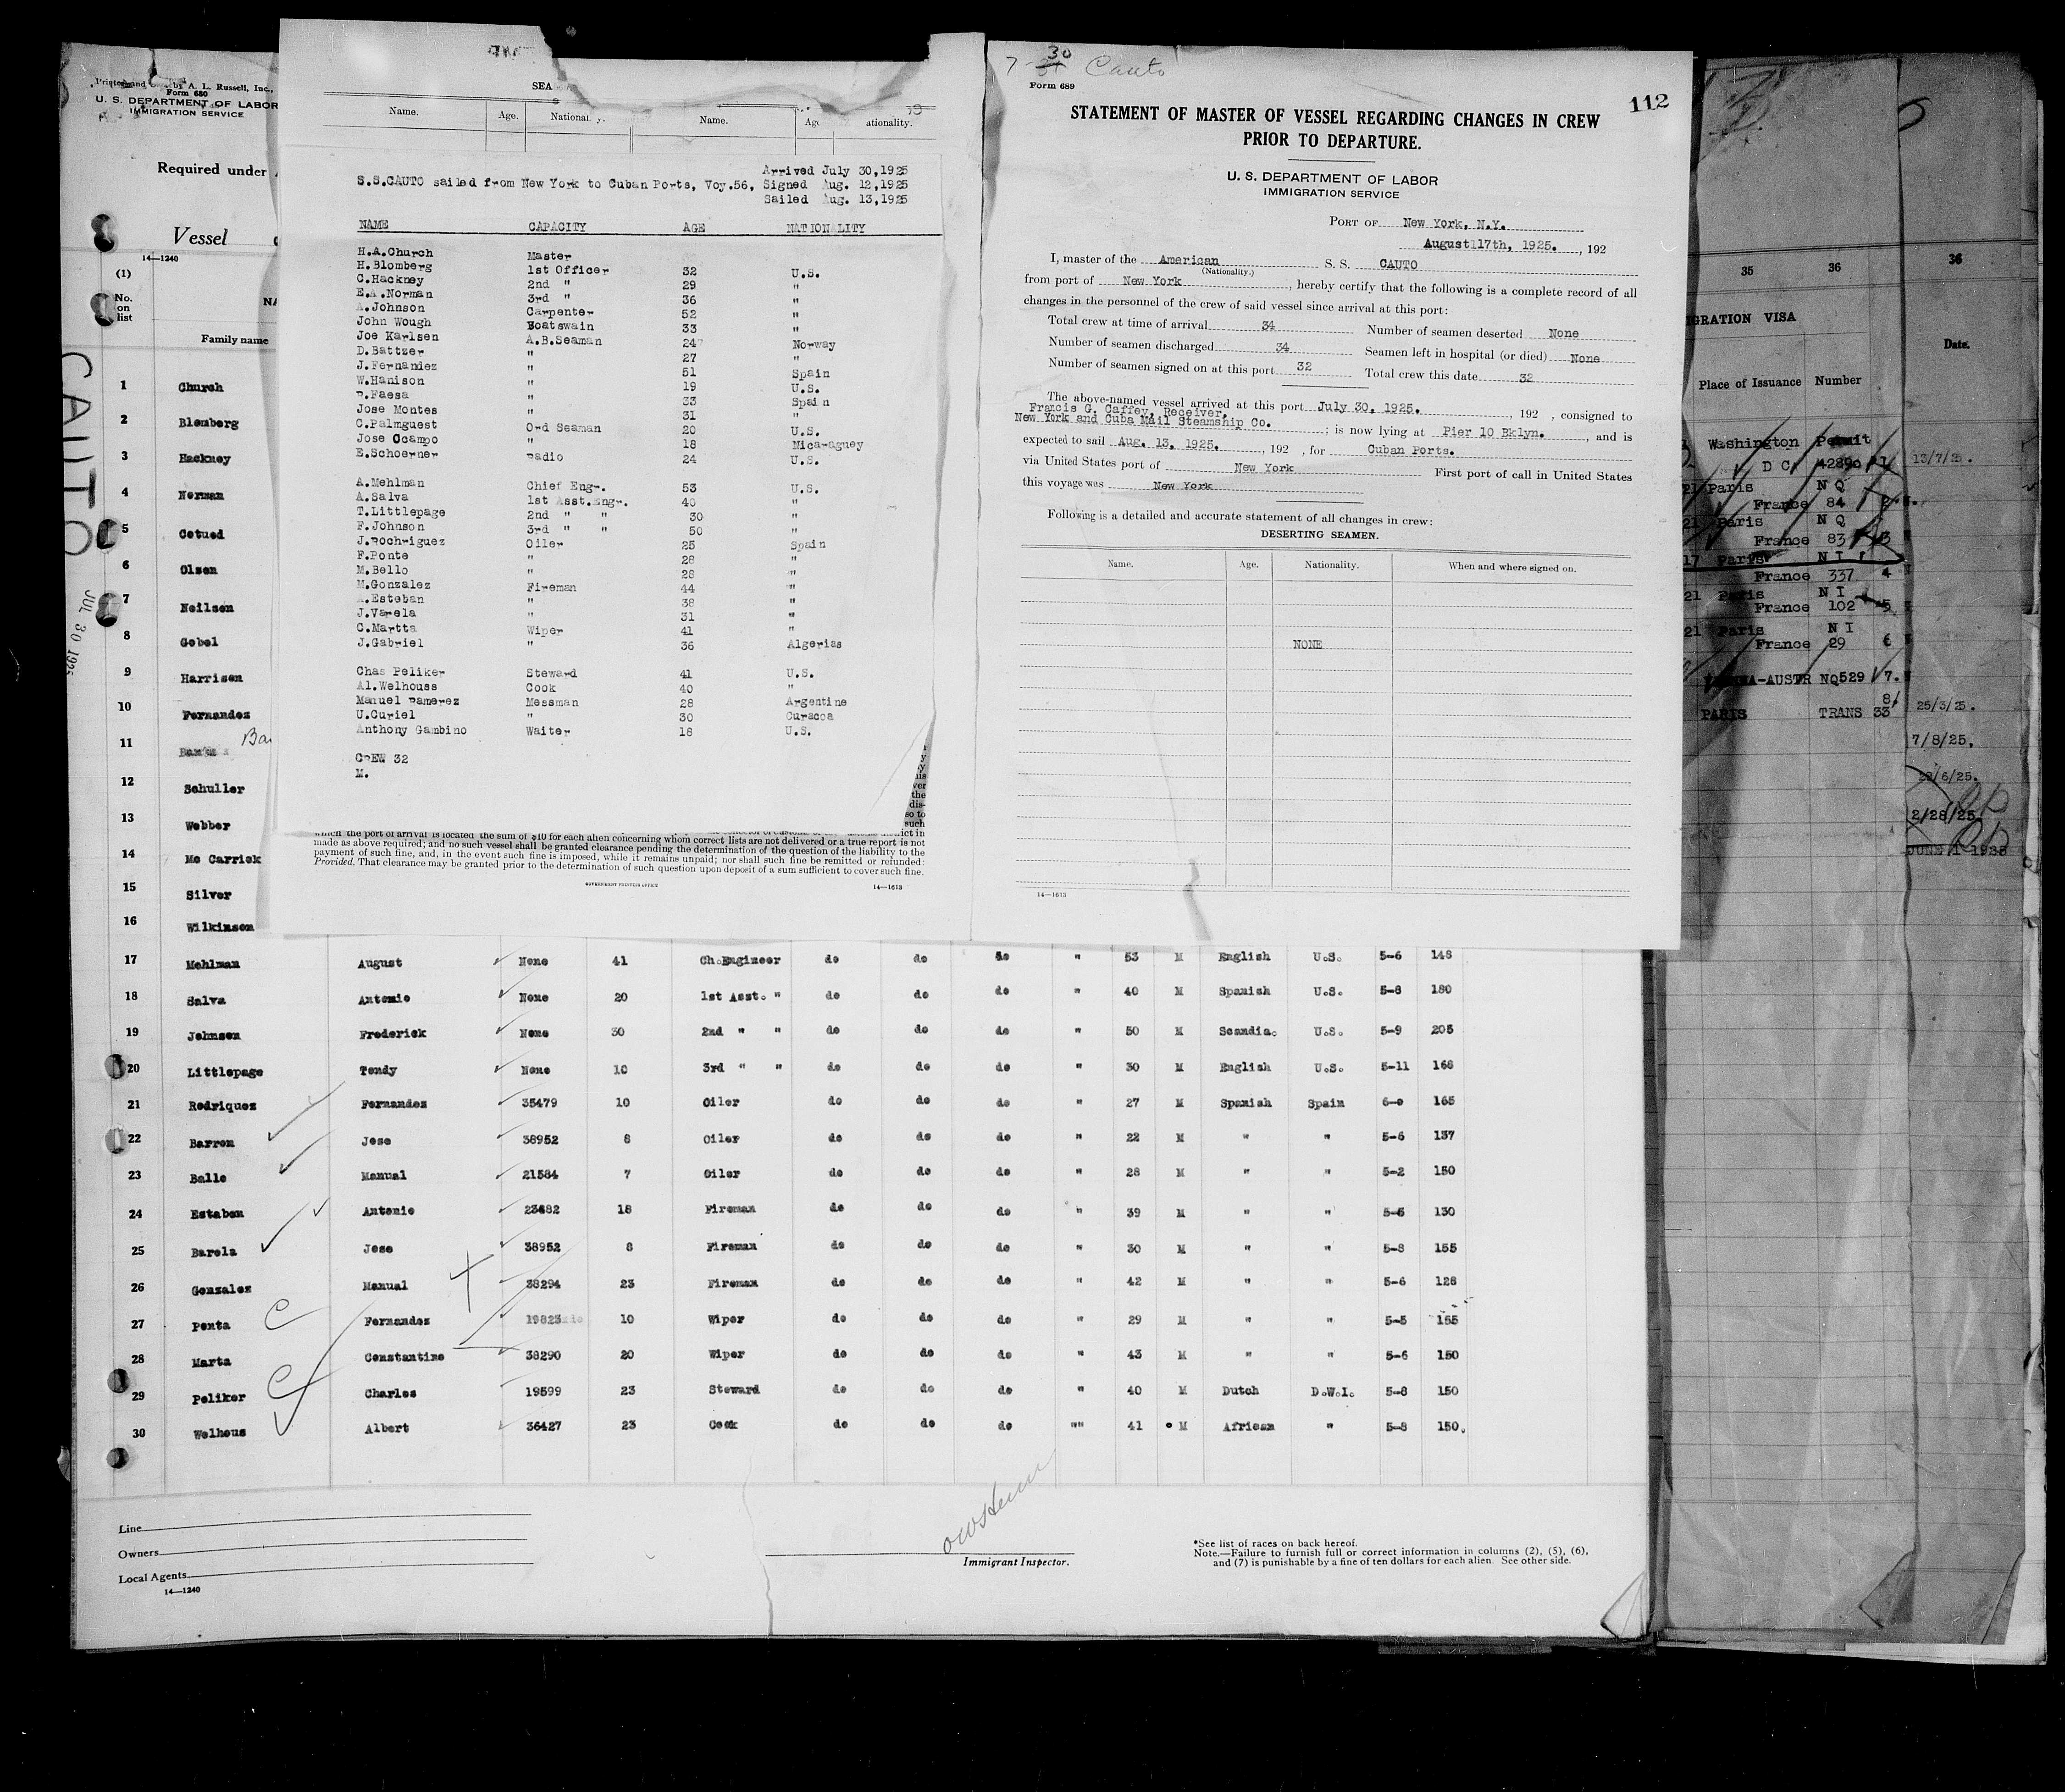 Form 680
U. S. DEPARTMENT OF LABOR
IMMIGRATION SERVICE
Required under
Vessel
14—1240
(1)
No. on list
Family name
CAUTO
JUL 30 1925
1 Church
2 Blomberg
3 Hackney
4 Norman
5 Cotued
6 Olsen
7 Neilsen
8 Gobel
9 Harrison
10 Fernandez
11 Ba
12 Schuller
13 Webber
14 Mc Carrick
15 Silver
16 Wilkinson
Name. Age. Name.
S.S.CAUTO sailed from New York to Cuban Ports, Voy.56,
Arrived July 30,1925
Signed Aug. 12,1925
Sailed Aug. 13,1925
NAME CAPACITY AGE NATIONALITY
H.A.Church Master
H.Blomberg 1st Officer 32 U.S.
C.Hackney 2nd " 29 "
E.A.Norman 3rd " 36 "
A.Johnson Carpenter 52 "
John Wough Boatswain 33 "
Joe Karlsen A.B.Seaman 24 Norway
D.Battzer " 27 "
J.Fernandez " 51 Spain
W.Hanison " 19 U.S.
P.Faesa " 33 Spain
Jose Montes " 31 "
C.Palmguest Ord Seaman 20 U.S.
Jose Ocampo " 18 Nicaraguey
E.Schoerner Radio 24 U.S.
A.Mehlman Chief Engr. 53 U.S.
A.Salva 1st Asst.Engr. 40 "
T.Littlepage 2nd " " 30 "
F.Johnson 3rd " " 50 "
J.Rochriguez Oiler 25 Spain
F.Ponte " 28 "
M.Bello " 28 "
M.Gonzalez Fireman 44 "
A.Esteban " 38 "
J.Varela " 31 "
C.Martta Wiper 41 "
J.Gabriel " 36 Algerias
Chas Peliker Steward 41 U.S.
Al.Welhouss Cook 40 "
Manuel Ramerez Messman 28 Argentine
U.Curiel " 30 Curacoa
Anthony Gambino Waiter 18 U.S.
CREW 32
M.
which the port of arrival is located the sum of $10 for each alien concerning whom correct lists are not delivered or a true report is not
made as above required; and no such vessel shall be granted clearance pending the determination of the question of the liability to the
payment of such fine, and, in the event such fine is imposed, while it remains unpaid; nor shall such fine be remitted or refunded:
Provided, That clearance may be granted prior to the determination of such question upon deposit of a sum sufficient to cover such fine.
GOVERNMENT PRINTING OFFICE 14—1613
7-30 Cauto
Form 689
112
STATEMENT OF MASTER OF VESSEL REGARDING CHANGES IN CREW
PRIOR TO DEPARTURE.
U. S. DEPARTMENT OF LABOR
IMMIGRATION SERVICE
PORT OF New York, N.Y.
August 17th, 1925. , 192
I, master of the American S. S. CAUTO
(Nationality.)
from port of New York , hereby certify that the following is a complete record of all
changes in the personnel of the crew of said vessel since arrival at this port:
Total crew at time of arrival 34 Number of seamen deserted None
Number of seamen discharged 34 Seamen left in hospital (or died) None
Number of seamen signed on at this port 32 Total crew this date 32
The above-named vessel arrived at this port July 30, 1925. , 192 , consigned to
Francis G. Caffey, Receiver,
New York and Cuba Mail Steamship Co. ; is now lying at Pier 10 Bklyn. , and is
expected to sail Aug. 13, 1925. , 192 , for Cuban Ports.
via United States port of New York First port of call in United States
this voyage was New York
Following is a detailed and accurate statement of all changes in crew:
DESERTING SEAMEN.
Name. Age. Nationality. When and where signed on.
NONE
14—1613
17 Mehlman August None 41 Ch.Engineer do do do " 53 M English U.S. 5-6 148
18 Salva Antonio None 20 1st Asst. " do do do " 40 M Spanish U.S. 5-8 180
19 Johnson Frederick None 30 2nd " " do do do " 50 M Scandia. U.S. 5-9 205
20 Littlepage Tendy None 10 3rd " " do do do " 30 M English U.S. 5-11 168
21 Rodriquez Fernandez 35479 10 Oiler do do do " 27 M Spanish Spain 6-0 165
22 Barron Jose 38952 8 Oiler do do do " 22 M " " 5-6 137
23 Ballo Manual 21584 7 Oiler do do do " 28 M " " 5-2 150
24 Estaben Antonio 23682 18 Fireman do do do " 39 M " " 5-6 130
25 Barela Jose 38952 8 Fireman do do do " 30 M " " 5-8 155
26 Gonzalez Manual 38294 23 Fireman do do do " 42 M " " 5-6 128
27 Penta Fernandez 19823 10 Wiper do do do " 29 M " " 5-5 155
28 Marta Constantine 38290 20 Wiper do do do " 43 M " " 5-6 150
29 Peliker Charles 19599 23 Steward do do do " 40 M Dutch D.W.I. 5-8 150
30 Welhous Albert 36427 23 Cook do do do "" 41 M African " 5-8 150.
Line
Owners
Local Agents
14—1240
Immigrant Inspector.
*See list of races on back hereof.
Note.—Failure to furnish full or correct information in columns (2), (5), (6),
and (7) is punishable by a fine of ten dollars for each alien. See other side.
35 36
IGRATION VISA
Place of Issuance Number
Washington Permit
D C
Paris N Q
France 84 2
Paris N Q
France 83 3
Paris N I
France 337 4
Paris N I
France 102 5
Paris N I
France 29 6
AUSTR NQ529 7.
8
PARIS TRANS 33
36
Date.
13/7/25.
25/3/25.
7/8/25.
/6/25.
2/28/25
JUNE 1 1925